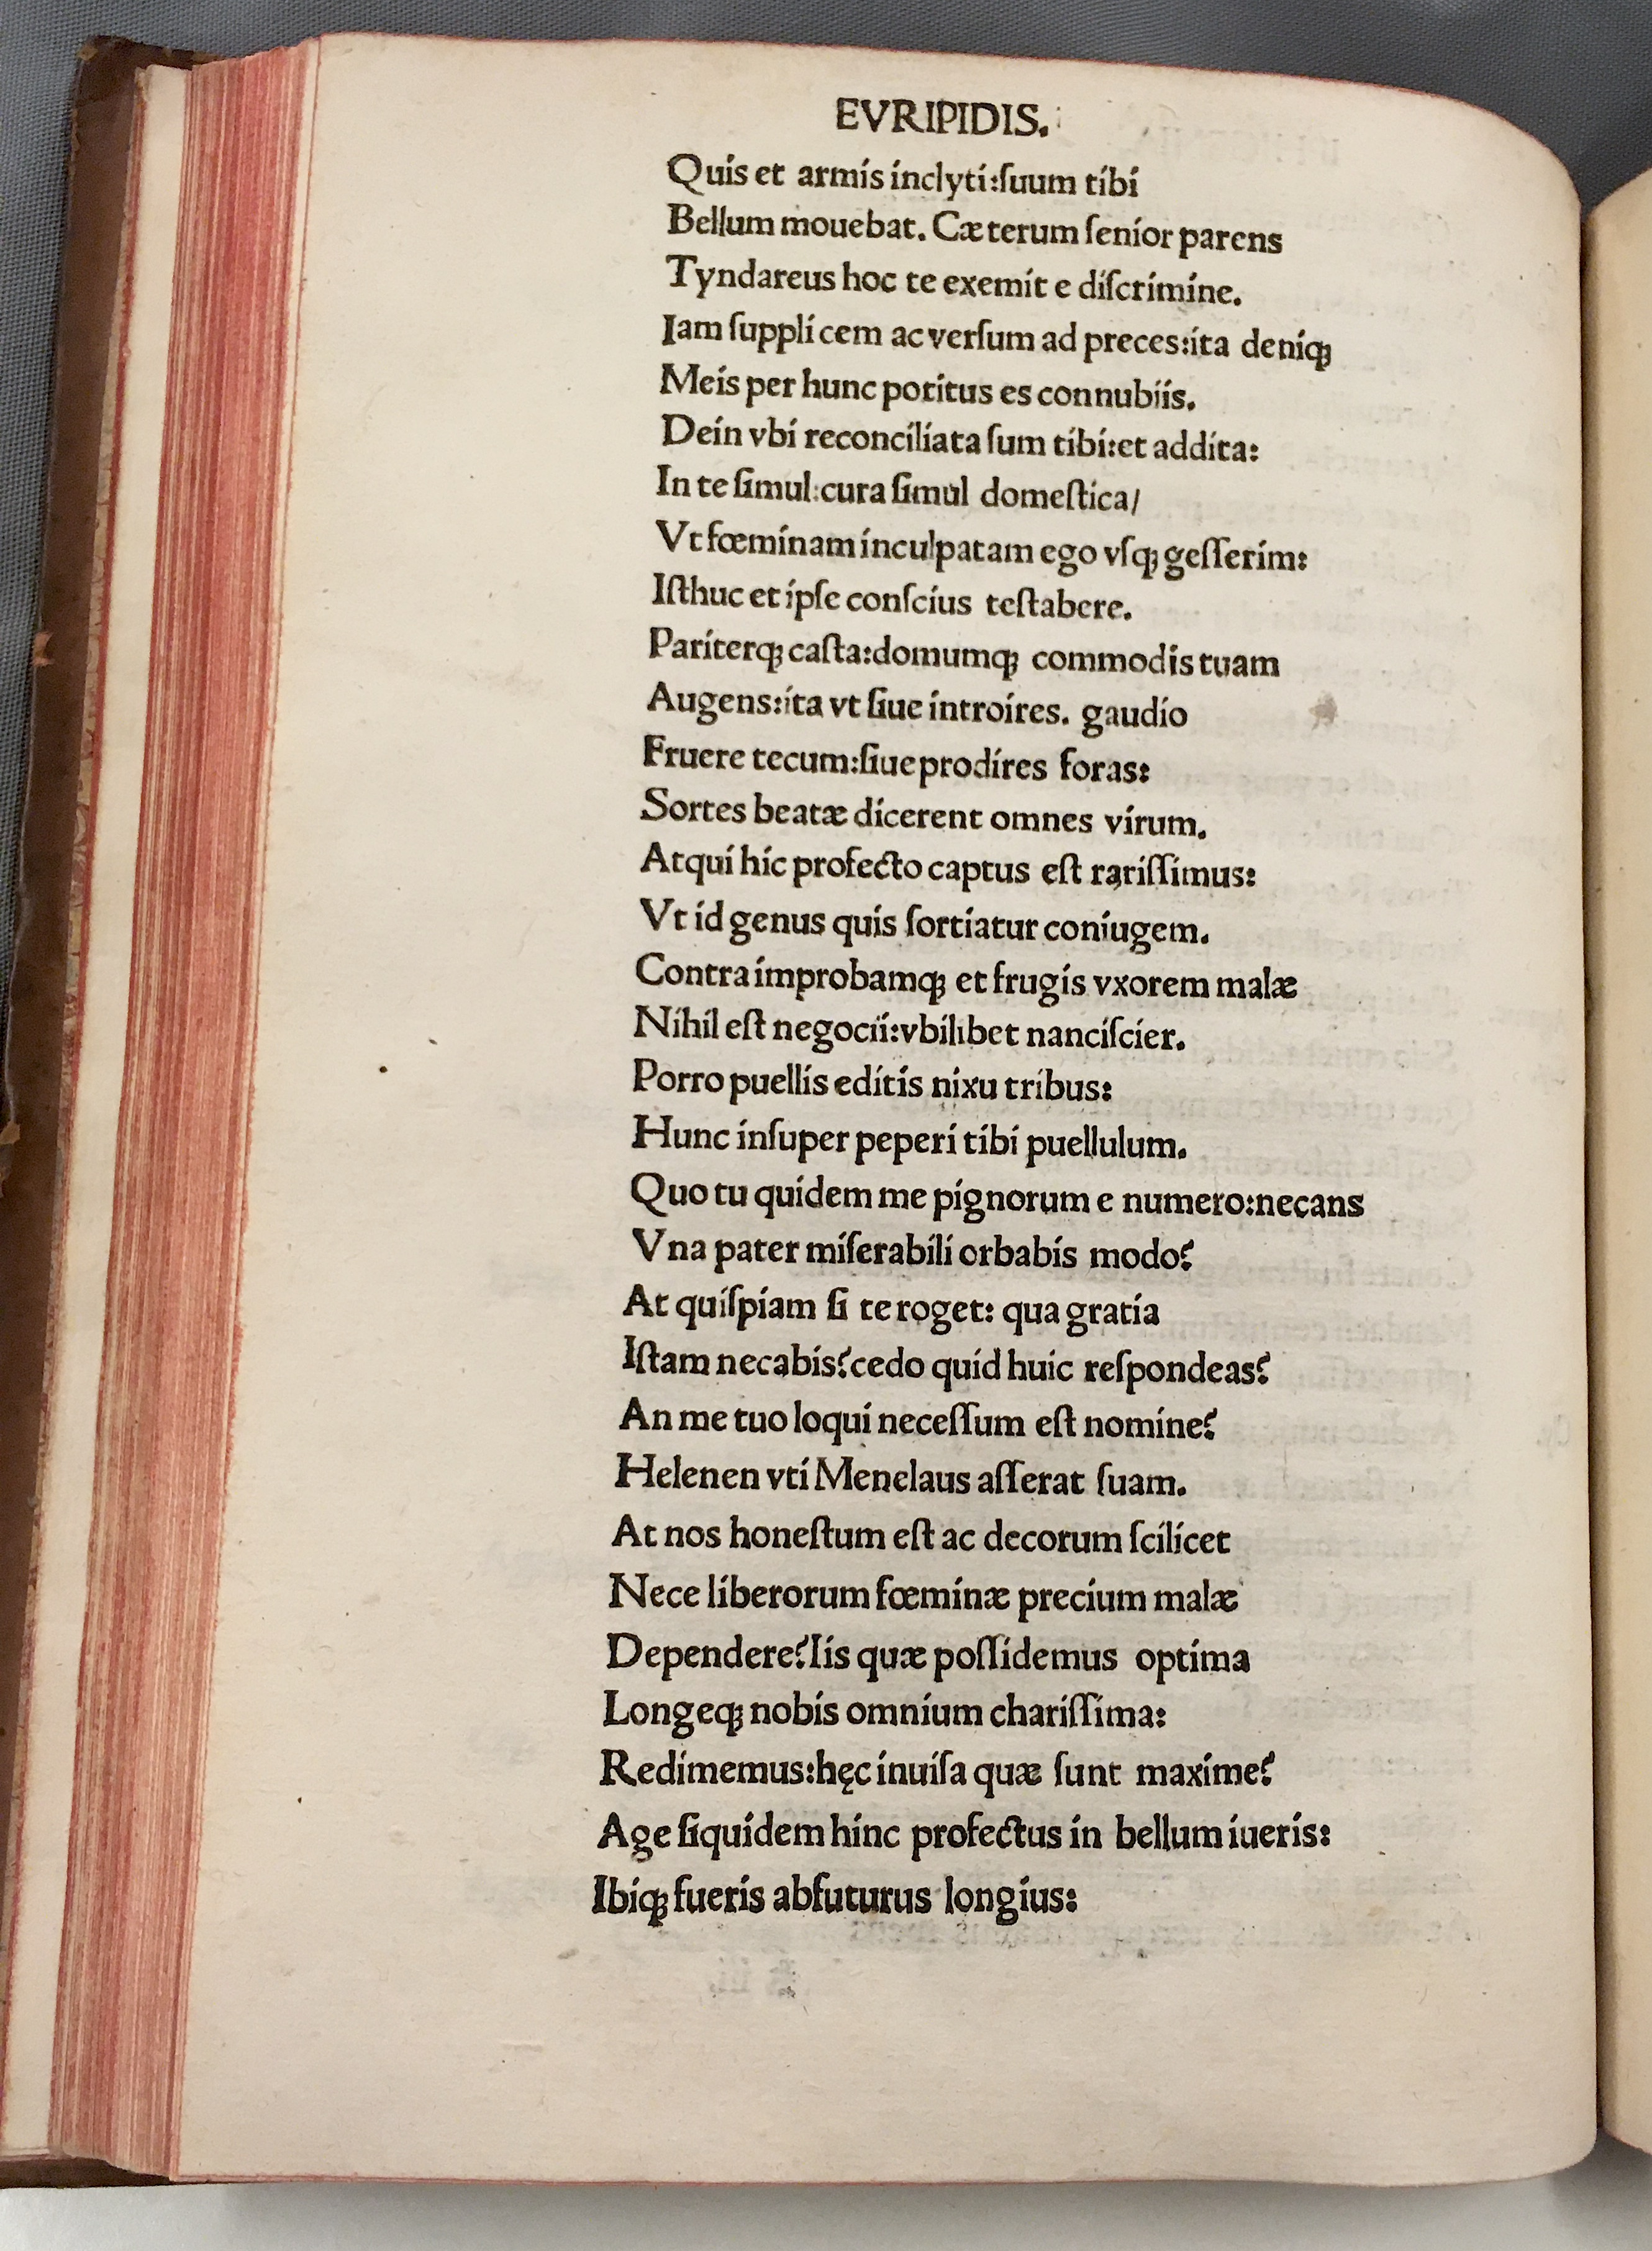 EVRIPIDIS.
Quis et armis inclyti:ſuum tibi
Bellum mouebat. Cæterum ſenior parens
Tyndareus hoc te exemit e diſcrimine.
Iam ſupplicem ac verſum ad preces:ita deniqꝫ
Meis per hunc potitus es connubiis.
Dein vbi reconciliata ſum tibi:et addita:
In te ſimul:cura ſimul domeſtica/
Vt fœminam inculpatam ego vſqꝫ geſſerim:
Iſthuc et ipſe conſcius teſtabere.
Pariterqꝫ caſta:domumqꝫ commodis tuam
Augens:ita vt ſiue introires. gaudio
Fruere tecum:ſiue prodires foras:
Sortes beatæ dicerent omnes virum.
Atqui hic profecto captus eſt rariſſimus:
Vt id genus quis ſortiatur coniugem.
Contra improbamqꝫ et frugis vxorem malæ
Nihil eſt negocii:vbilibet nanciſcier.
Porro puellis editis nixu tribus:
Hunc inſuper peperi tibi puellulum.
Quo tu quidem me pignorum e numero:necans
Vna pater miſerabili orbabis modo?
At quiſpiam ſi te roget: qua gratia
Iſtam necabis?cedo quid huic reſpondeas?
An me tuo loqui neceſſum eſt nomine?
Helenen vti Menelaus aſſerat ſuam.
At nos honeſtum eſt ac decorum ſcilicet
Nece liberorum fœminæ precium malæ
Dependere?Iis quæ poſſidemus optima
Longeqꝫ nobis omnium chariſſima:
Redimemus:hęc inuiſa quæ ſunt maxime?
Age ſiquidem hinc profectus in bellum iueris:
Ibiqꝫ fueris abfuturus longius: